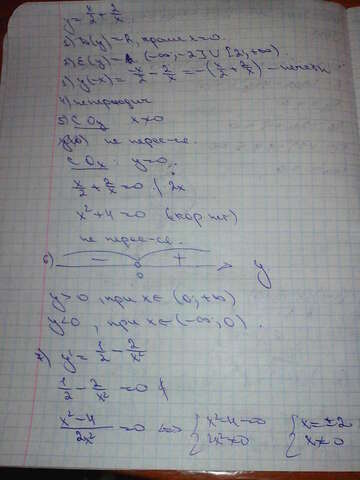 y = x/2 + 2/x
1) D(y) = R, кроме x=0.
2) E(y) = (-∞;-2] ∪ [2;+∞)
3) y(-x) = -x/2 - 2/x = -(x/2 + 2/x) - нечетн
4) непериодич
5) C Oy x≠0
не перес-ся.
C Ox: y=0.
x/2 + 2/x = 0 | 2x
x²+4=0 (кор. нет)
не перес-ся.
6) - 0 + y
0
y>0, при x∈(0;+∞)
y<0, при x∈(-∞;0).
7) y' = 1/2 - 2/x²
1/2 - 2/x² = 0
(x²-4)/2x² = 0 <=> { x²-4=0 { x=±2
2x²≠0 x≠0